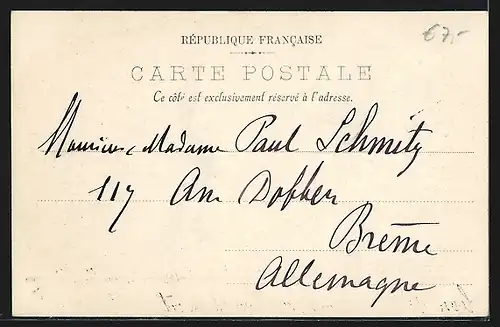 67,-
RÉPUBLIQUE FRANÇAISE
CARTE POSTALE
Ce côté est exclusivement réservé à l'adresse.
Monsieur e Madame Paul Schmitz
117 Am Dobben
Brême
Allemagne